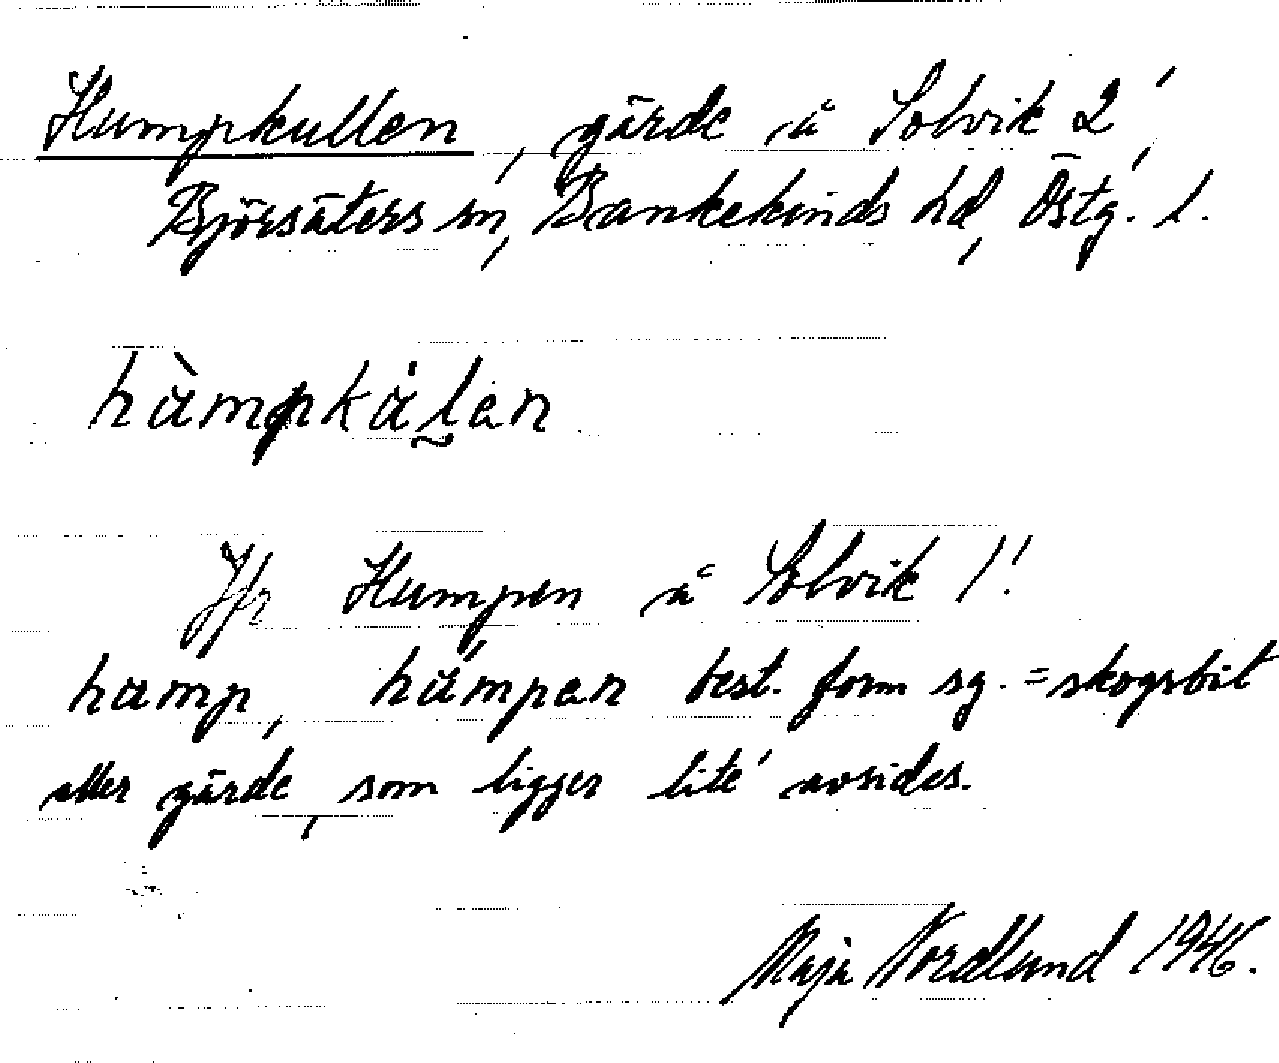 Humpkullen, gärde å Solvik 2'
Björsäters sn, Bankekinds hd, Östg. l.
hàmpkálan
Jfr Humpen å Solvik 1'!
hamp, hámpan best. form sg. = skogsbit
eller gärde, som ligger lite' avsides.
Maja Nordlund 1946.